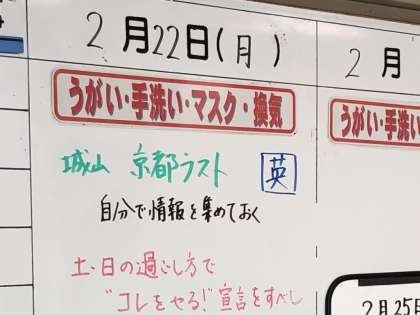 2月22日(月)
うがい・手洗い・マスク・換気
城山 京都ラスト 英
自分で情報を集めておく
土・日の過ごし方で
"コレをやる!"宣言をすべし
2月
うがい・手洗
2月25日